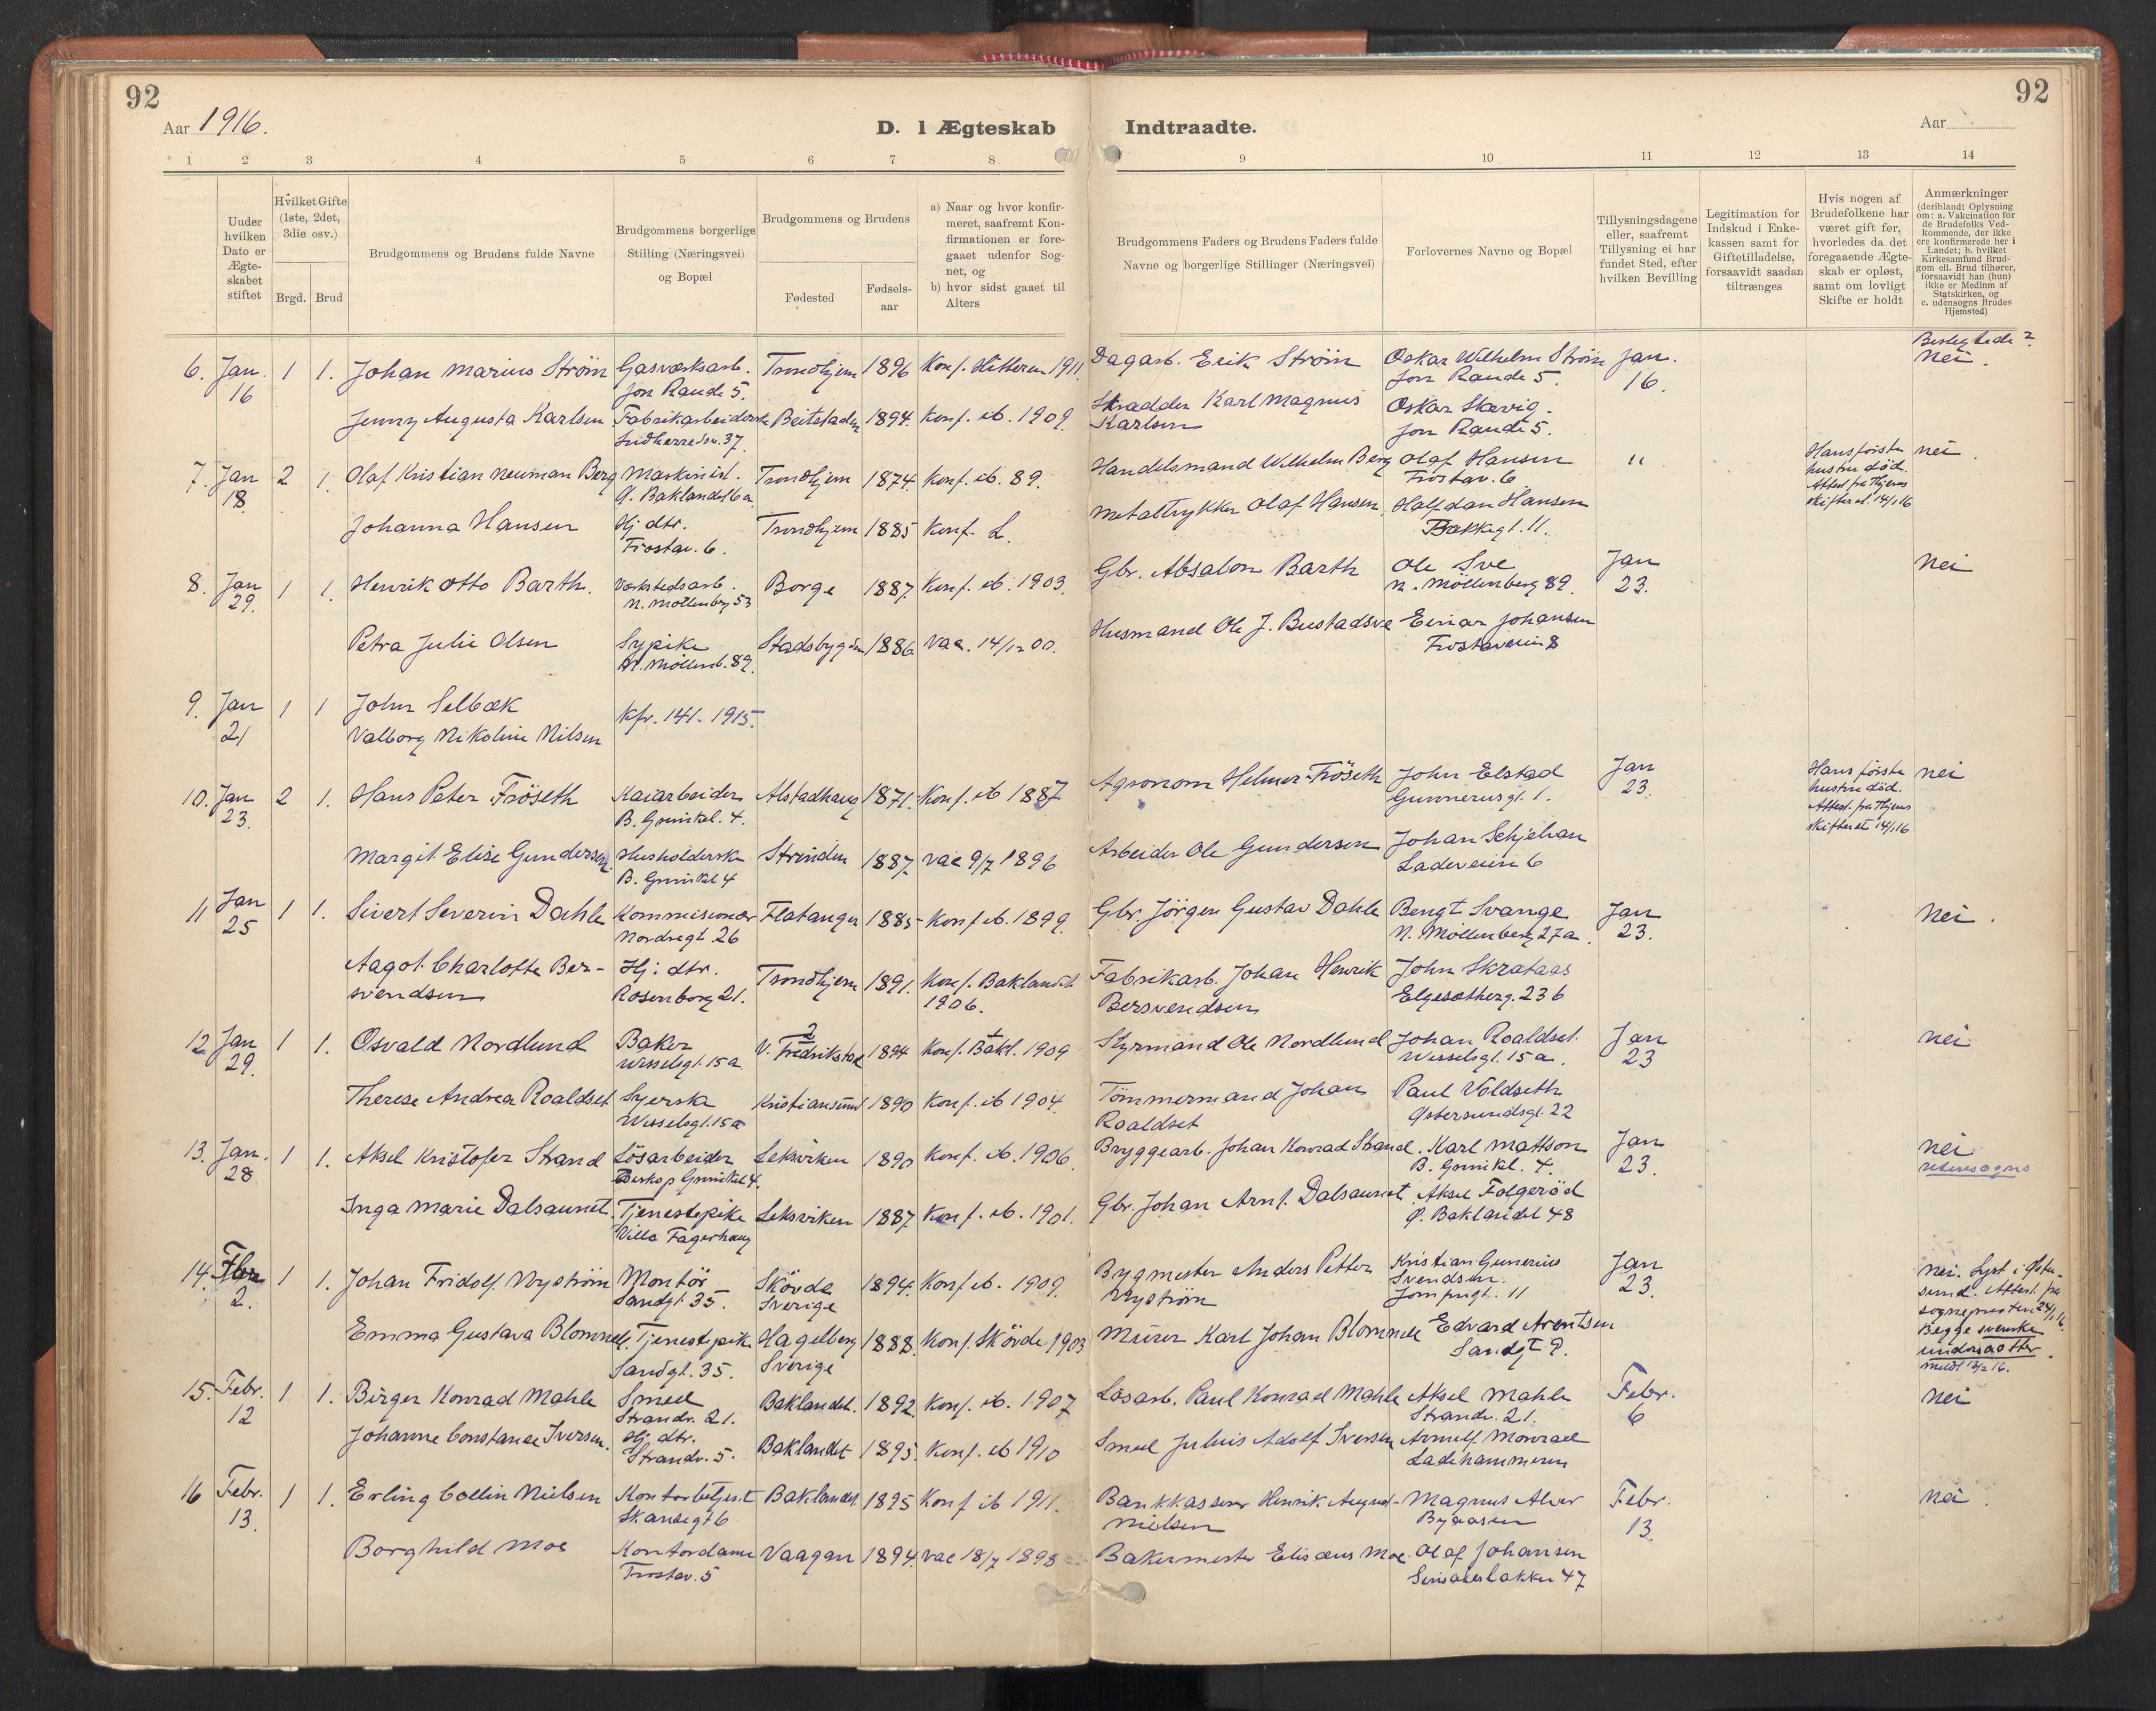 92
92
Aar 1916.
D. I Ægteskab Indtraadte.
Aar
1 2 3 4 5 6 7 8 9 10 11 12 13 14
Uuder hvilken Dato er Ægte- skabet stiftet
Hvilket Gifte (1ste, 2det, 3die osv.)
Brgd. Brud
Brudgommens og Brudens fulde Navne
Brudgommens borgerlige Stilling (Næringsvei) og Bopæl
Brudgommens og Brudens
Fødested
Fødsels- aar
a) Naar og hvor konfir- meret, saafremt Kon- firmationen er fore- gaaet udenfor Sog- net, og
b) hvor sidst gaaet til Alters
Brudgommens Faders og Brudens Faders fulde Navne og borgerlige Stillinger (Næringsvei)
Forlovernes Navne og Bopæl
Tillysningsdagene eller, saafremt Tillysning ei har fundet Sted, efter hvilken Bevilling
Legitimation for Indskud i Enke- kassen samt for Giftetilladelse, forsaavidt saadan tiltrænges
Hvis nogen af Brudefolkene har været gift før, hvorledes da det foregaaende Ægte- skab er opløst, samt om lovligt Skifte er holdt
Anmærkninger (deriblandt Oplysning om: a. Vakcination for de Brudefolks Ved- kommende, der ikke ere konfirmerede her i Landet; b. hvilket Kirkesamfund Brud- gom ell. Brud tilhører, forsaavidt han (hun) ikke er Medlnm af Statskirken, og c. udensogns Brudes Hjemsted)
Beslegtede?
6. Jan. 16 1 1. Johan Marius Strøm Gasværksarb. Jon Raudes 5. Trondhjem 1896 Konf. Hitteren 1911. Dagarb. Erik Strøm Oskar Wilhelm Strøm Jon Raudes 5. Jan. 16. nei.
Jenny Augusta Karlsen Fabrikarbeiderske Indherredsv. 37. Beitstaden 1894. Konf. ib. 1909. Skrædder Karl Magnus Karlsen Oskar Skævig. Jon Raudes 5.
7. Jan 18. 2 1. Olaf Kristian Neuman Berg Maskinist. Ø. Baklandet 6a Trondhjem 1874. Konf. ib. 89. Handelsmand Wilhelm Berg Olaf Hansen Frostav. 6 " Hans første hustru død. Attest fra Thjems skifteret 14/1 16 nei.
Johanna Hansen Hj. dtr. Frostav. 6. Trondhjem 1885 Konf. L. Metaltrykker Olaf Hansen Halfdan Hansen Bakkegt. 11.
8. Jan 29. 1 1. Henrik Otto Barth. Værkstedsarb. N. Møllenberg 53 Borge 1887. Konf. ib. 1903. Gbr. Absalon Barth Ole Sve N. Möllenberg 89. Jan 23. nei
Petra Julie Olsen Sypike N. Møllenb. 89. Stadsbygden 1886 vac. 14/12 00. Husmand Ole J. Bustadsve Einar Johansen Frostaveien 8
9. Jan 21 1 1 John Selbæk
Valborg Nikoline Nilsen Kfr. 141. 1915.
10. Jan 23. 2 1. Hans Peter Fröseth Kaiarbeider B. Grimkel. 4. Alstadhaug 1871. Konf. ib 1887 Agronom Helmer Fröseth John Elstad Gunnerusgt. 1. Jan 23. Hans første hustru død. Attest. fra Thjems skifteret 14/1 16 nei
Margit Elise Gundersen. Husholderske B. Grimkel 4 Strinden 1887. vac 9/7 1896 Arbeider Ole Gundersen Johan Schjelvan Ladeveien 6
11 Jan 25 1 1. Sivert Severin Dahle Kommisionær Nordregt. 26 Flatanger 1885 Konf ib. 1899. Gbr. Jörgen Gustav Dahle Bengt Svange N. Möllenberg 27a. Jan 23. nei.
Aagot Charlotte Ber- svendsen Hj. dtr. Rosenborg 21. Trondhjem 1891. Konf. Baklandet 1906. Fabrikarb. Johan Henrik Bersvendsen John Skrataas Elgesæterg. 23b
12 Jan 29. 1 1. Osvald Nordlund Baker Wesselsgt. 15a V. Fredrikstad 1894 Konf. Bakl. 1909 Styrmand Ole Nordlund Johan Roaldset. Wesselsgt. 15a. Jan 23 nei
Therese Andrea Roaldset Syerske Wesselsgt. 15a Kristiansund 1890 Konf. ib 1904. Tömmermand Johan Roaldset Paul Voldseth Østersundsgt. 22
13. Jan. 28 1 1. Aksel Kristofer Strand Løsarbeider Biskop Grimkel 4. Leksviken 1890 Konf. ib. 1906. Bryggearb. Johan Konrad Strand. Karl Mattson B. Grimkel. 4. Jan 23. nei utensogns
Inga Marie Dalsaunet. Tjenestepike Villa Fagerhaug Leksviken 1887. Konf. ib. 1901. Gbr. Johan Arnt. Dalsaunet Aksel Folgeröd Ø. Baklandet 48
14. Febr. 2. 1 1. Johan Fridolf Nyström Montör Sandgt. 35. Skövde Sverige 1894. Konf ib. 1909. Bygmester Anders Petter Nyström Kristian Gunerius Svendsen. Jomfrugt. 11 Jan 23. nei. Lyst i Øster- sund. Attest. fra sognepresten 24/1 16. Begge svenske undersaatter. meldt 12/2 16.
Emma Gustava Blommell. Tjenestepike Sandgt. 35. Hagelberg Sverige 1888. Konf. Skövde 1903 Murer Karl Johan Blommell Edvard Arentsen Sandgt 9.
15. Febr. 12 1 1. Birger Konrad Mahle Smed Strandv. 21. Baklandet. 1892. Konf. ib. 1907 Løsarb. Paul Konrad Mahle Aksel Mahle Strandv. 21. Febr. 6 nei
Johanne Constance Iversen. Hj. dtr. Strandv. 5. Baklandet 1895. Konf. ib 1910 Smed Julius Adolf Iversen Arnulf Monrael Ladehammeren
16 Febr. 13. 1 1. Erling Collin Nielsen Kontorbetjent Skansegt 6 Baklandet. 1895 Konf ib 1911. Bankkasserer Henrik August Nielsen Magnus Alver Byaasen Febr. 13. nei.
Borghild Moe Kontordame Frostav. 5 Vaagan 1894. vac 18/7 1898 Bakermester Elisæus Moe. Olaf Johansen Singsakerbakken 47